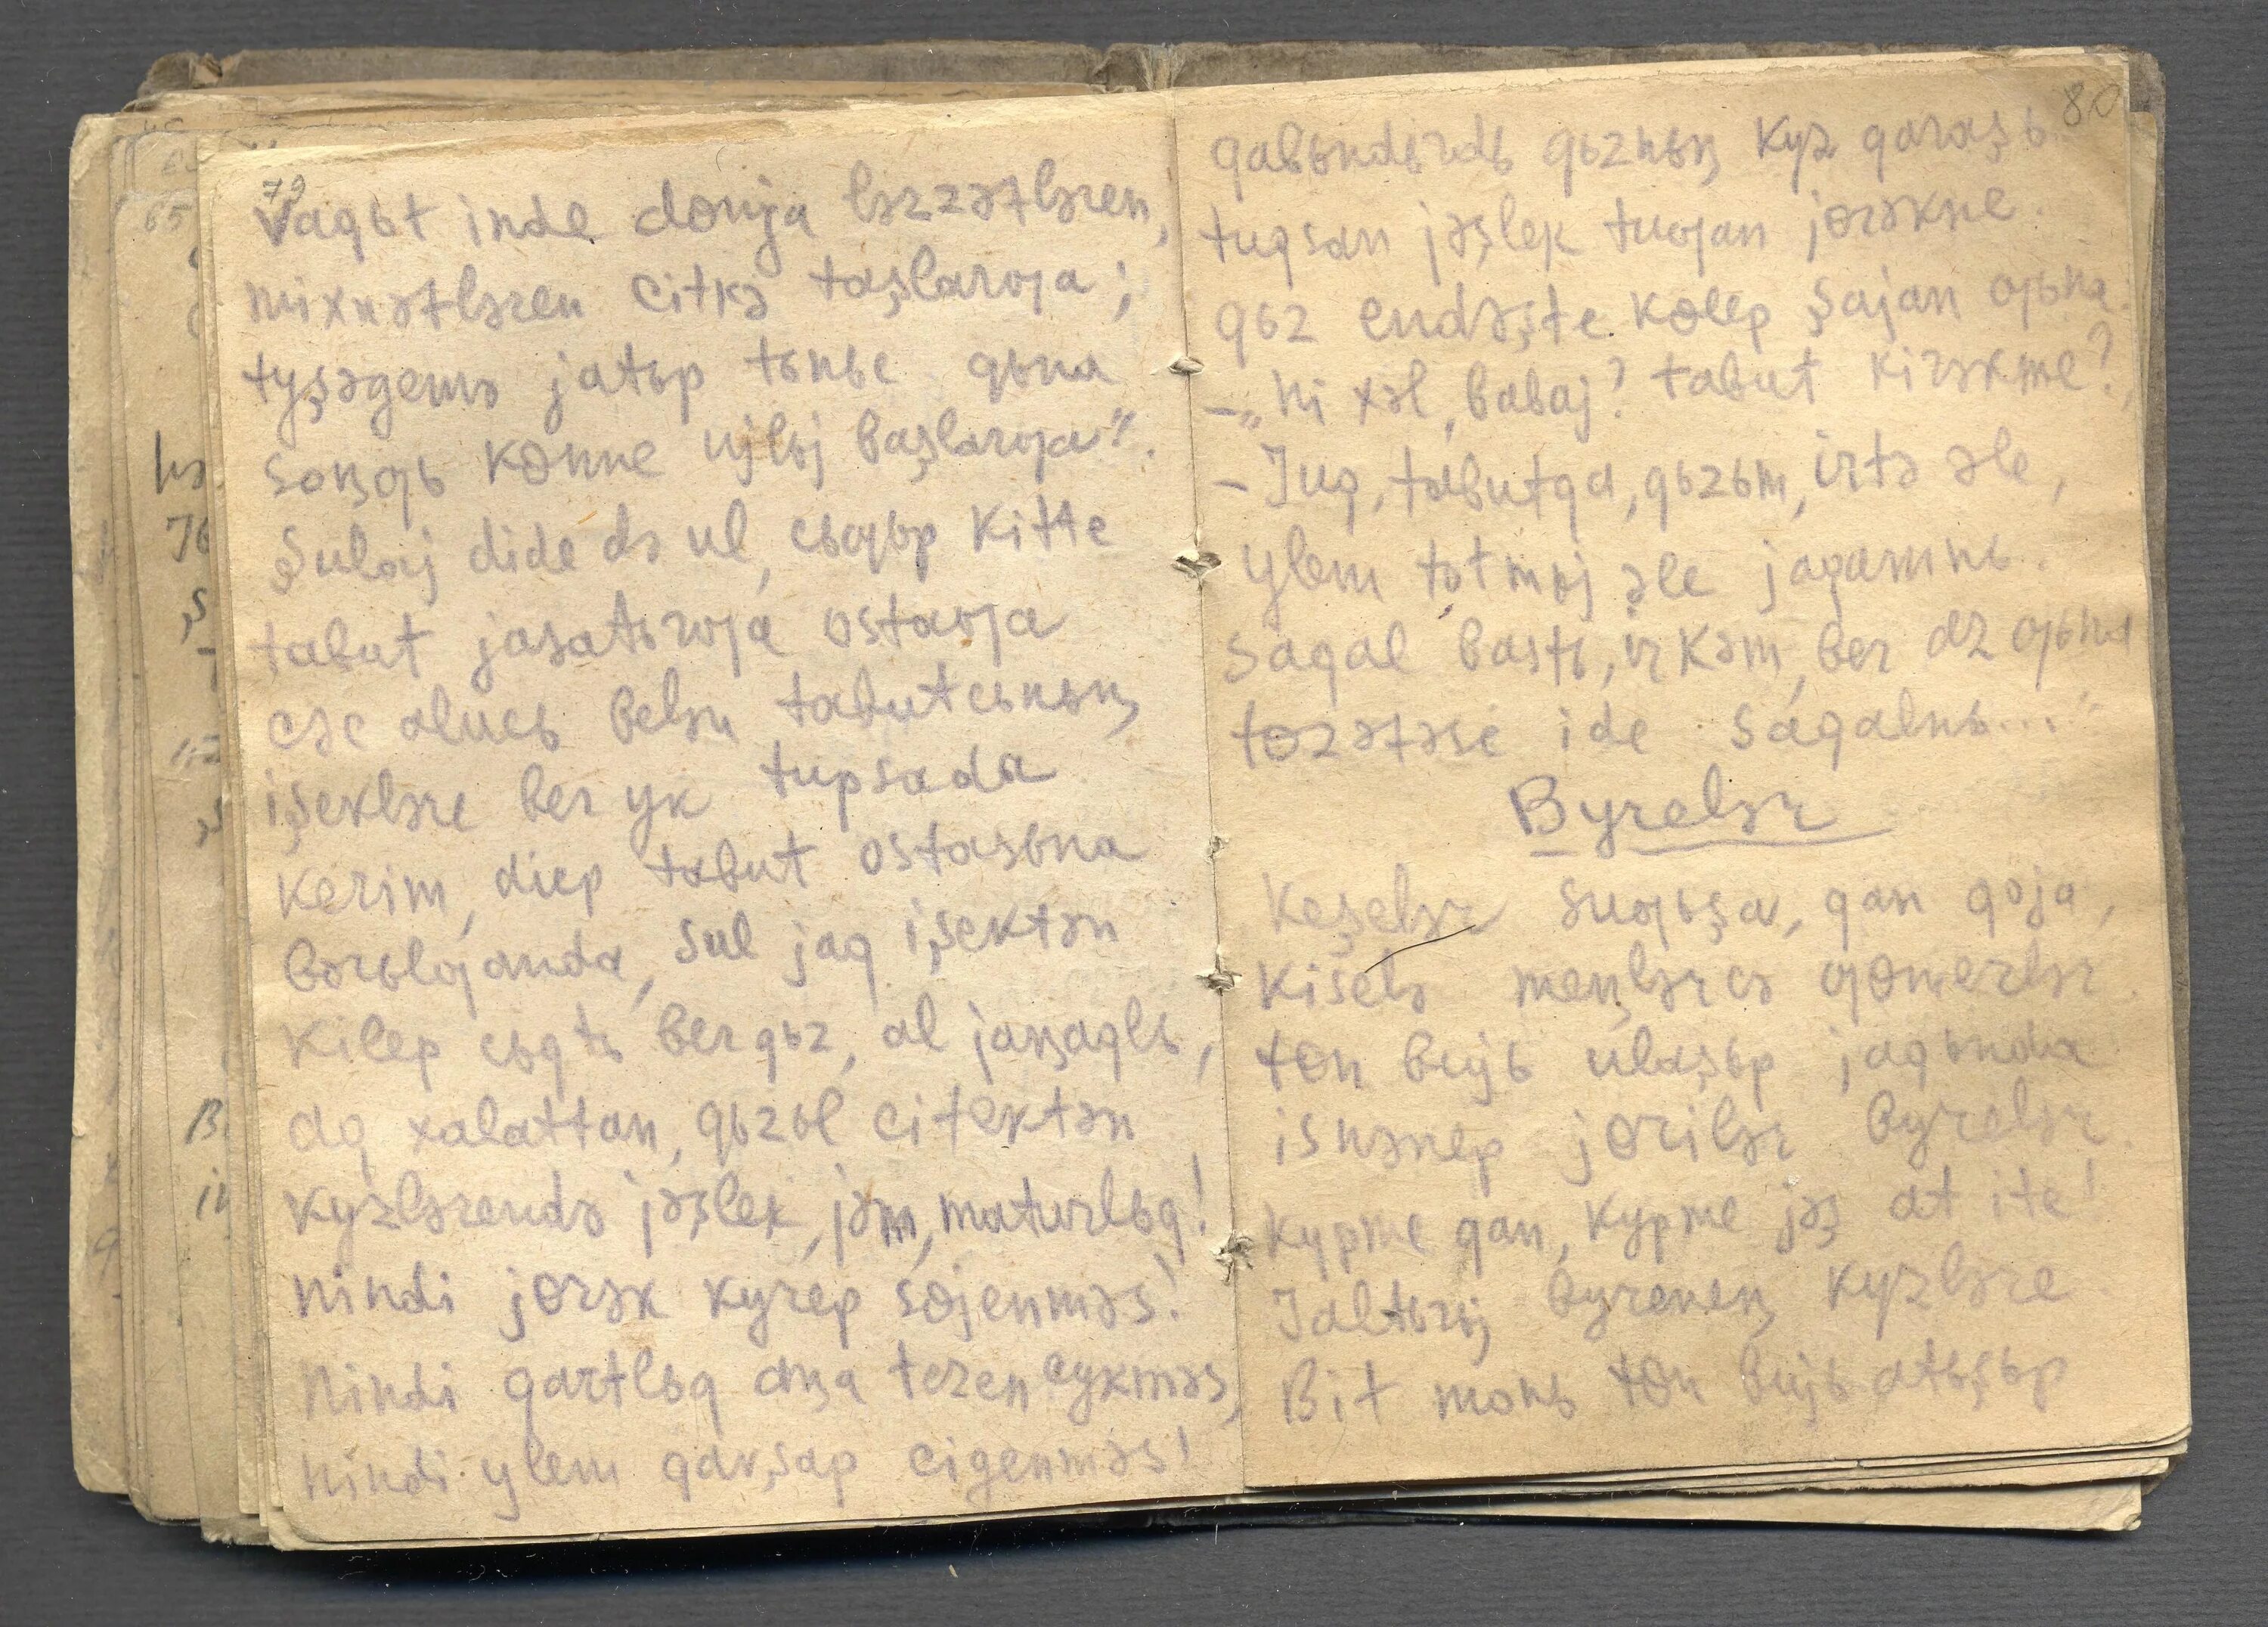 79
Vaqьt inde dɵnja ləzzətləren,
mixnətləren citkə taşlarƣa;
tyşəgemə jatьp tьnьc qьna
soꞑƣь kɵnne ujlьj ʙaşlarƣa".
Şulaj dide də ul, cьƣьp kitte
taʙut jasatьrƣa ostaƣa
cəc alucь ʙelən taʙutcьnьꞑ
işekləre ʙer yk tupsada
Kerim, diep taʙut ostasьna
ʙərelgəndə, sul jaq işektən
Kilep cьqtь ʙer qьz, al jaꞑaqlь,
aq xalattan, qьzьl citektən
Kyzlərendə jəşlek, jəm, maturlьq!
Nindi jɵrək kyrep sɵjenməs!
Nindi qartlьq aꞑa tezen cykməs,
nindi ylem qavşap cigenməs!
80
qaʙьndьrdь qьznьꞑ kyz qaraşь
tuqsan jəşlek tuƣan jɵrəkne.
Qьz endəşte kɵlep şajan ƣьna:
–„Ni xəl, ʙaʙaj? Taʙut kirəkme?"
– Juq, taʙutqa, qьzьm, irtə əle,
Ylem totmьj əle jaqamnь.
Saqal ʙastь, irkəm, ʙer az ƣьna
tɵzətəse ide saqalnь..."
Byrelər
Keşelər suƣьşa, qan qoja,
kişelə meꞑlərcə ƣɵmerlər.
tɵn ʙujь ulaşьp jaqьnda
isnənep jɵrilər ʙyrelər.
Kypme qan, kypme jəş at ite!
Jaltьrьj ʙyreneꞑ kyzləre
Bit monь tɵn ʙujь atьşьp